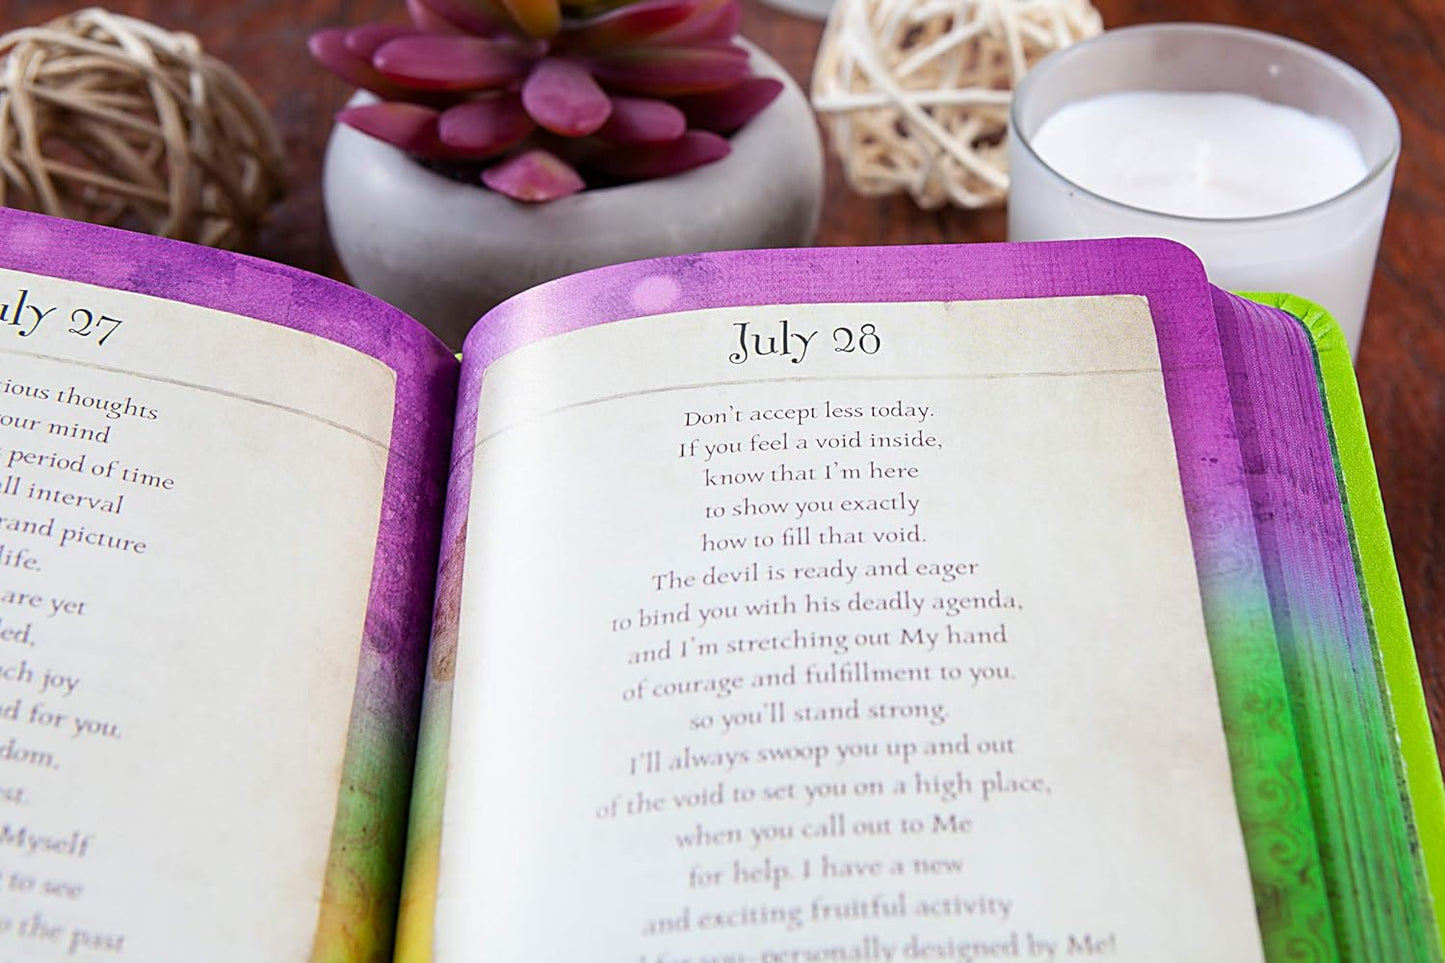 July 27
thoughts
your mind
period of time
interval
picture
life.
are yet
joy
for you.
Myself
to see
the past
July 28
Don't accept less today.
If you feel a void inside,
know that I'm here
to show you exactly
how to fill that void.
The devil is ready and eager
to bind you with his deadly agenda,
and I'm stretching out My hand
of courage and fulfillment to you.
so you'll stand strong.
I'll always swoop you up and out
of the void to set you on a high place,
when you call out to Me
for help. I have a new
and exciting fruitful activity
for you-personally designed by Me!